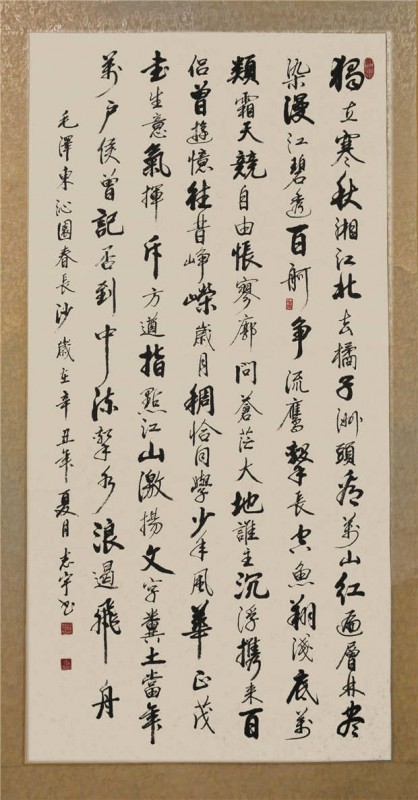 獨立寒秋湘江北去橘子洲頭看萬山紅遍層林盡
染漫江碧透百舸争流鷹擊長空魚翔淺底萬
類霜天競自由悵寥廓問蒼茫大地誰主沉浮攜來百
侣曾遊憶往昔崢嶸歲月稠恰同學少年風華正茂
書生意氣揮斥方遒指點江山激揚文字糞土當年
萬户侯曾記否到中流擊水浪遏飛舟
毛澤東沁園春長沙歲在辛丑年夏月志宇書